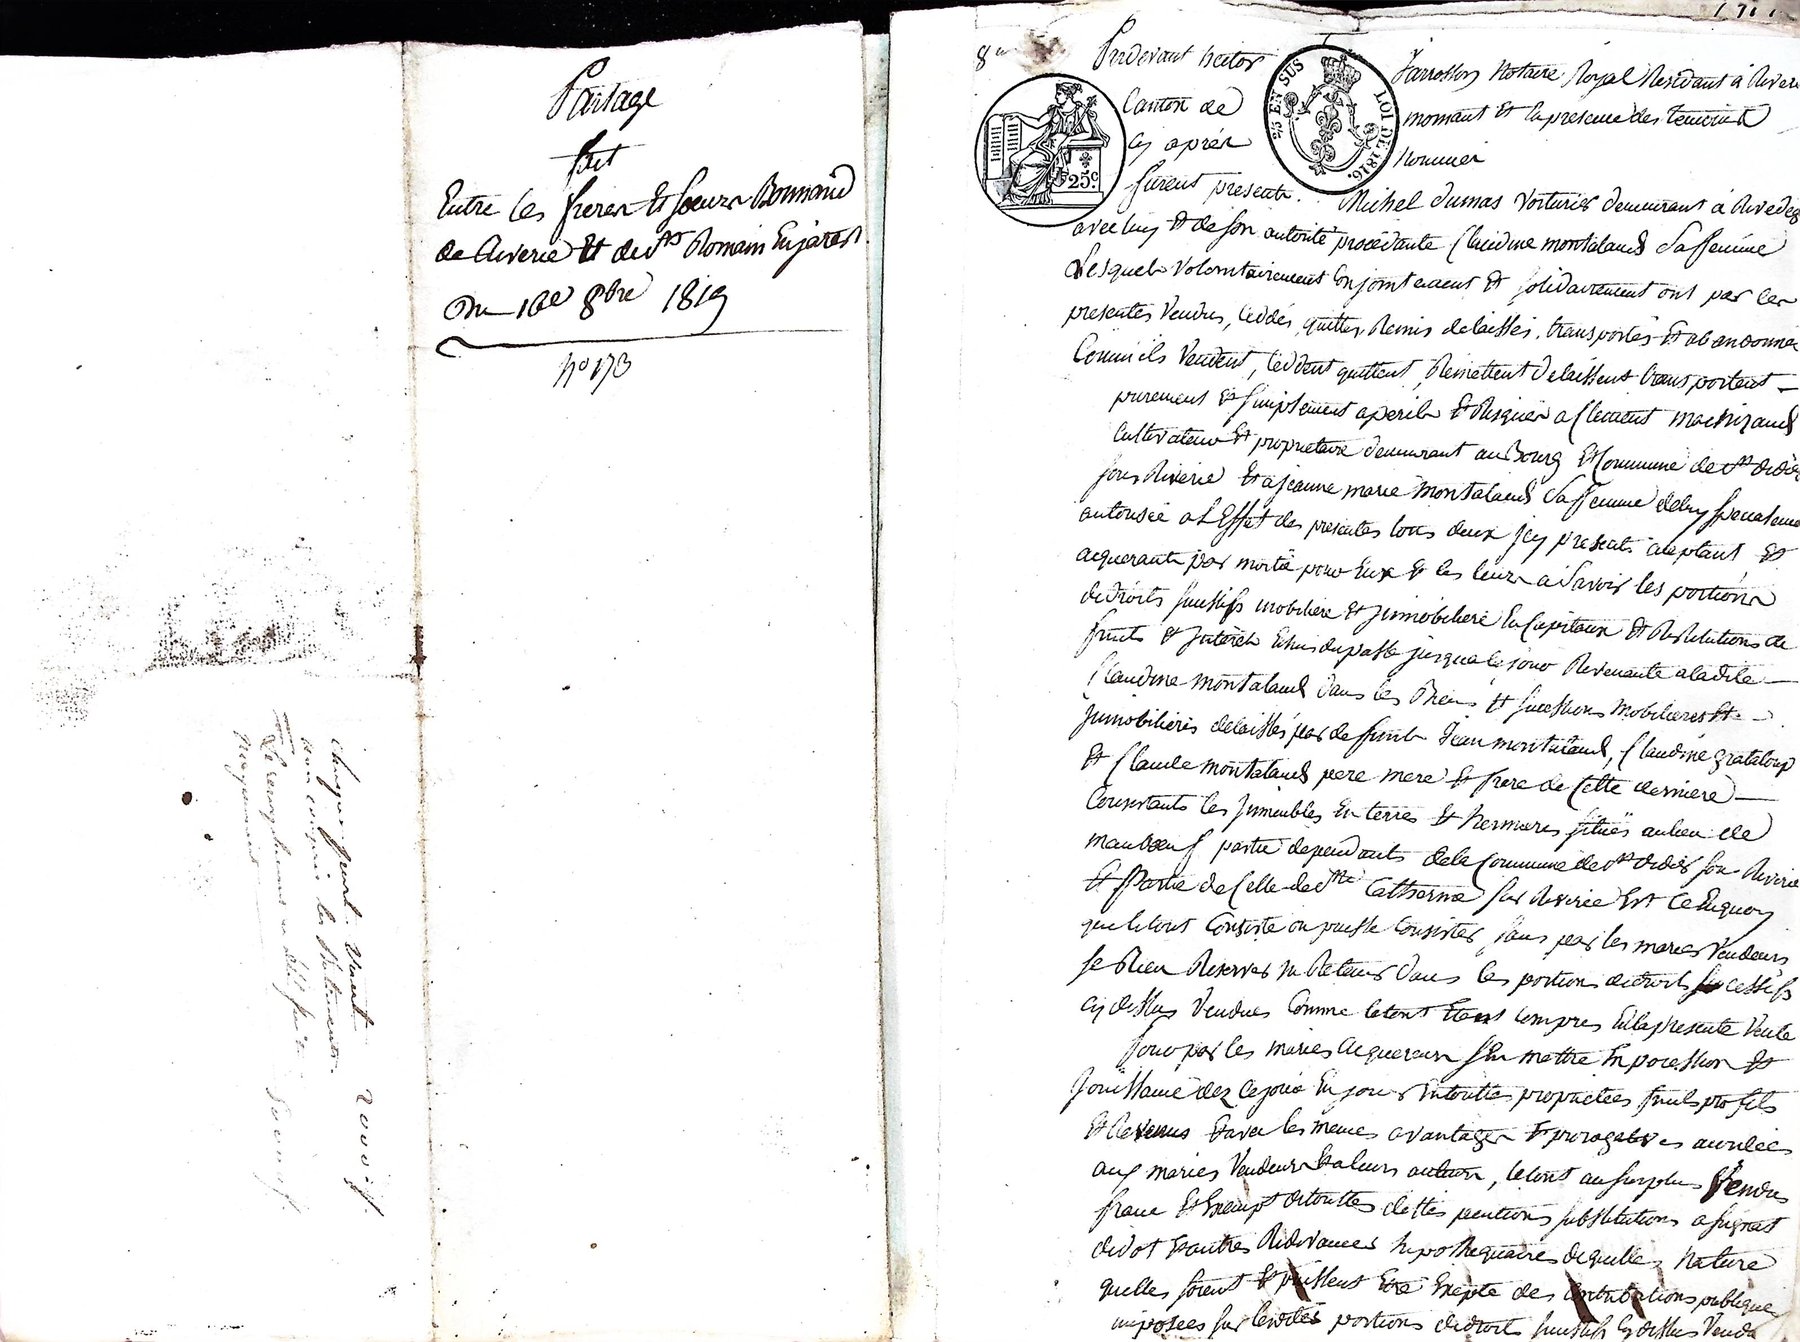 Partage
fait
Entre les freres Et soeurs Bonnand
de Riverie Et de st Romain En jarest
Du 16e 8bre 1819
no 173
chaque
non compris les
2000 f
8e
Pardevant hector Jarrosson Notaire Royal Residant à River
Canton de mornant Et En presence des temoins
cy après Nommés
25 EN SUS
LOI DE 1816.
25c
furent presents. Michel dumas Voiturier demeurant à Rivede
avec luy Et de son autorité procédante Claudine montaland Sa femme
Lesquels Volontairement Conjointement Et solidairement ont par ces
presentes Vendus, Ceddés, quittés Remis delaissés, transportés Et abandonnés
Comme ils Vendent, Ceddent quittent, Remettent delaissent transportent
purement Et simplement a perils Et Risques a Clement machizaud
Cultivateur Et propriétaire demeurant au Bourg Et Commune de st didier
sous Riverie Et a jeanne marie montaland Sa femme de luy
autorisée a L'Effet des presentes tous deux jcy presents aceptant Et
acquerants par moitié pour Eux Et les leurs a Savoir les portions
de droits sucessifs mobiliere Et jmmobiliere En Capitaux Et Restitutions de
fruits Et jnterets Echus du passé jusqua ce jour Revenante a ladite
Claudine montaland dans les Biens Et sucessions Mobilieres Et
jmmobilieres delaissés par defunts Jean montaland, Claudine grataloup
Et Claude montaland pere mere Et frere de Cette derniere
Consistants les jmmeubles En terres Et hermures situés au lieu de
mauboeuf partie dependants de la Commune de st didier sous Riverie
Et Partie de Celle de ste Catherine sur Riverie Et Ce En quoy
que le tout Consiste ou puisse Consister, sans par les maries Vendeurs
se Rien Reserver ni Retenir dans les portions de droits sucessifs
cy dessus Vendues Comme le tout Etant compris En la presente Vente
pour par les mariés acquereurs s'En mettre En possession Et
jouissance dez ce jour En jouir En toutte proprietées fruits profits
Et Revenus Et avec les mêmes avantages Et prerogatives accordées
aux maries Vendeurs Et a leurs auteurs, le tout au surplus Vendu
franc Et Exempt de touttes dettes pentions substitutions
de dot Et autres Redevances hipothequaires de quelle Nature
quelles soient Et puissent Etre Excepté des Contributions publique
imposées sur lesdites portions de droits sucessifs cy dessus Vendu